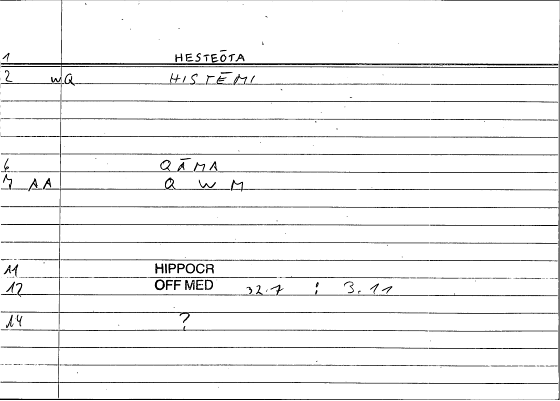 1 HESTEŌTA
2 WQ HISTĒMI
6 QĀMA
7 AA Q W M
11 HIPPOCR
12 OFF MED 32.7 : 3.11
14 ?